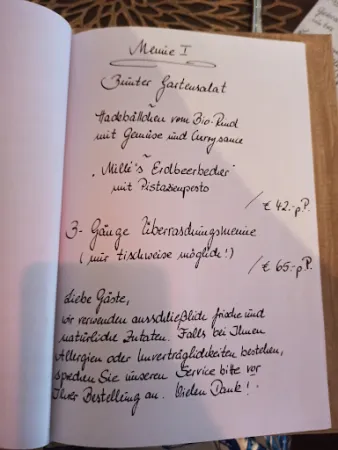 Menue I
Bunter Gartensalat
~
Hackbällchen vom Bio-Rind
mit Gemüse und Currysauce
~
"Milli's Erdbeerbecher"
mit Pistazienpesto
/ € 42.- p.P.
3-Gänge Überraschungsmenue
(nur tischweise möglich!)
/ € 65.- p.P.
Liebe Gäste,
wir verwenden ausschließlich frische und
natürliche Zutaten. Falls bei Ihnen
Allergien oder Unverträglichkeiten bestehen,
sprechen Sie unseren Service bitte vor
Ihrer Bestellung an. Vielen Dank!